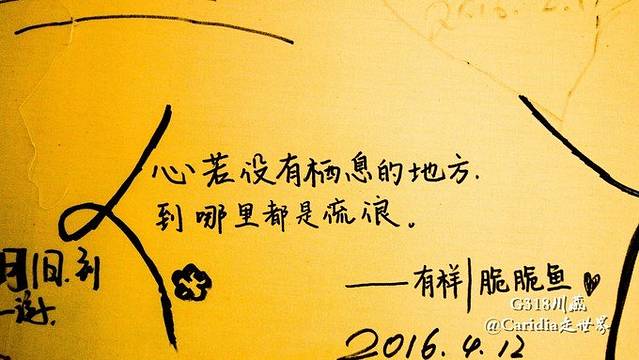 心若没有栖息的地方.
到哪里都是流浪。
——有样|脆脆鱼
G318川藏
@Caridia走世界
2016.4.12